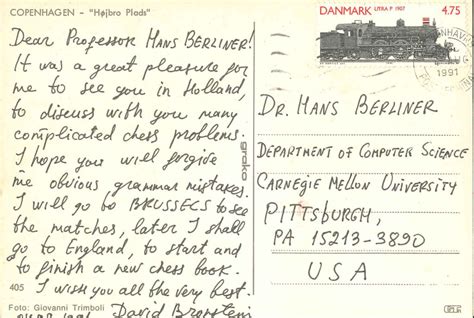 COPENHAGEN - "Højbro Plads"
Dear Professor HANS BERLINER!
It was a great pleasure for
me to see you in Holland,
to discuss with you many
complicated chess problems.
I hope you will forgive
me obvious grammar mistakes.
I will go to BRUSSECS to see
the matches, later I shall
go to England, to start and
to finish a new chess book.
I wish you all the very best.
David Bronstein
405
Foto: Giovanni Trimboli
grako
DANMARK
LITRA P 1907
4.75
1991
DR. HANS BERLINER
DEPARTMENT OF COMPUTER SCIENCE
CARNEGIE MELLON UNIVERSITY
PITTSBURGH,
PA 15213-3890
USA